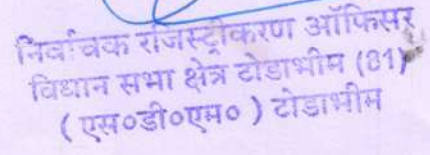 निर्वाचक रजिस्ट्रीकरण ऑफिसर
विधान सभा क्षेत्र टोडाभीम (81)
( एस०डी०एम० ) टोडाभीम